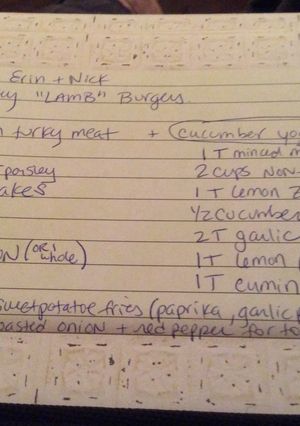 Erin + Nick
"LAMB" Burgers
turky meat + cucumber yo
1 T minced m
parsley 2 cups NON-
akes 1 T lemon Z
1/2 cucumber
2 T garlic
ON (OR 1 whole) 1T lemon
1T cumin
sweetpotatoe fries (paprika, garlic p
oasted onion + red pepper for to